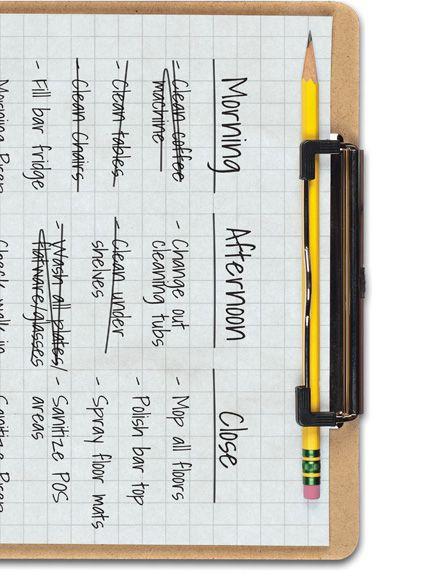 Morning
- Clean coffee
machine
- Clean tables
- Clean Chairs
- Fill bar fridge
Afternoon
- Change out
cleaning tubs
- Clean under
shelves
- Wash all plates/
flatware/glasses
Close
- Mop all floors
- Polish bar top
- Spray floor mats
- Sanitize POS
areas